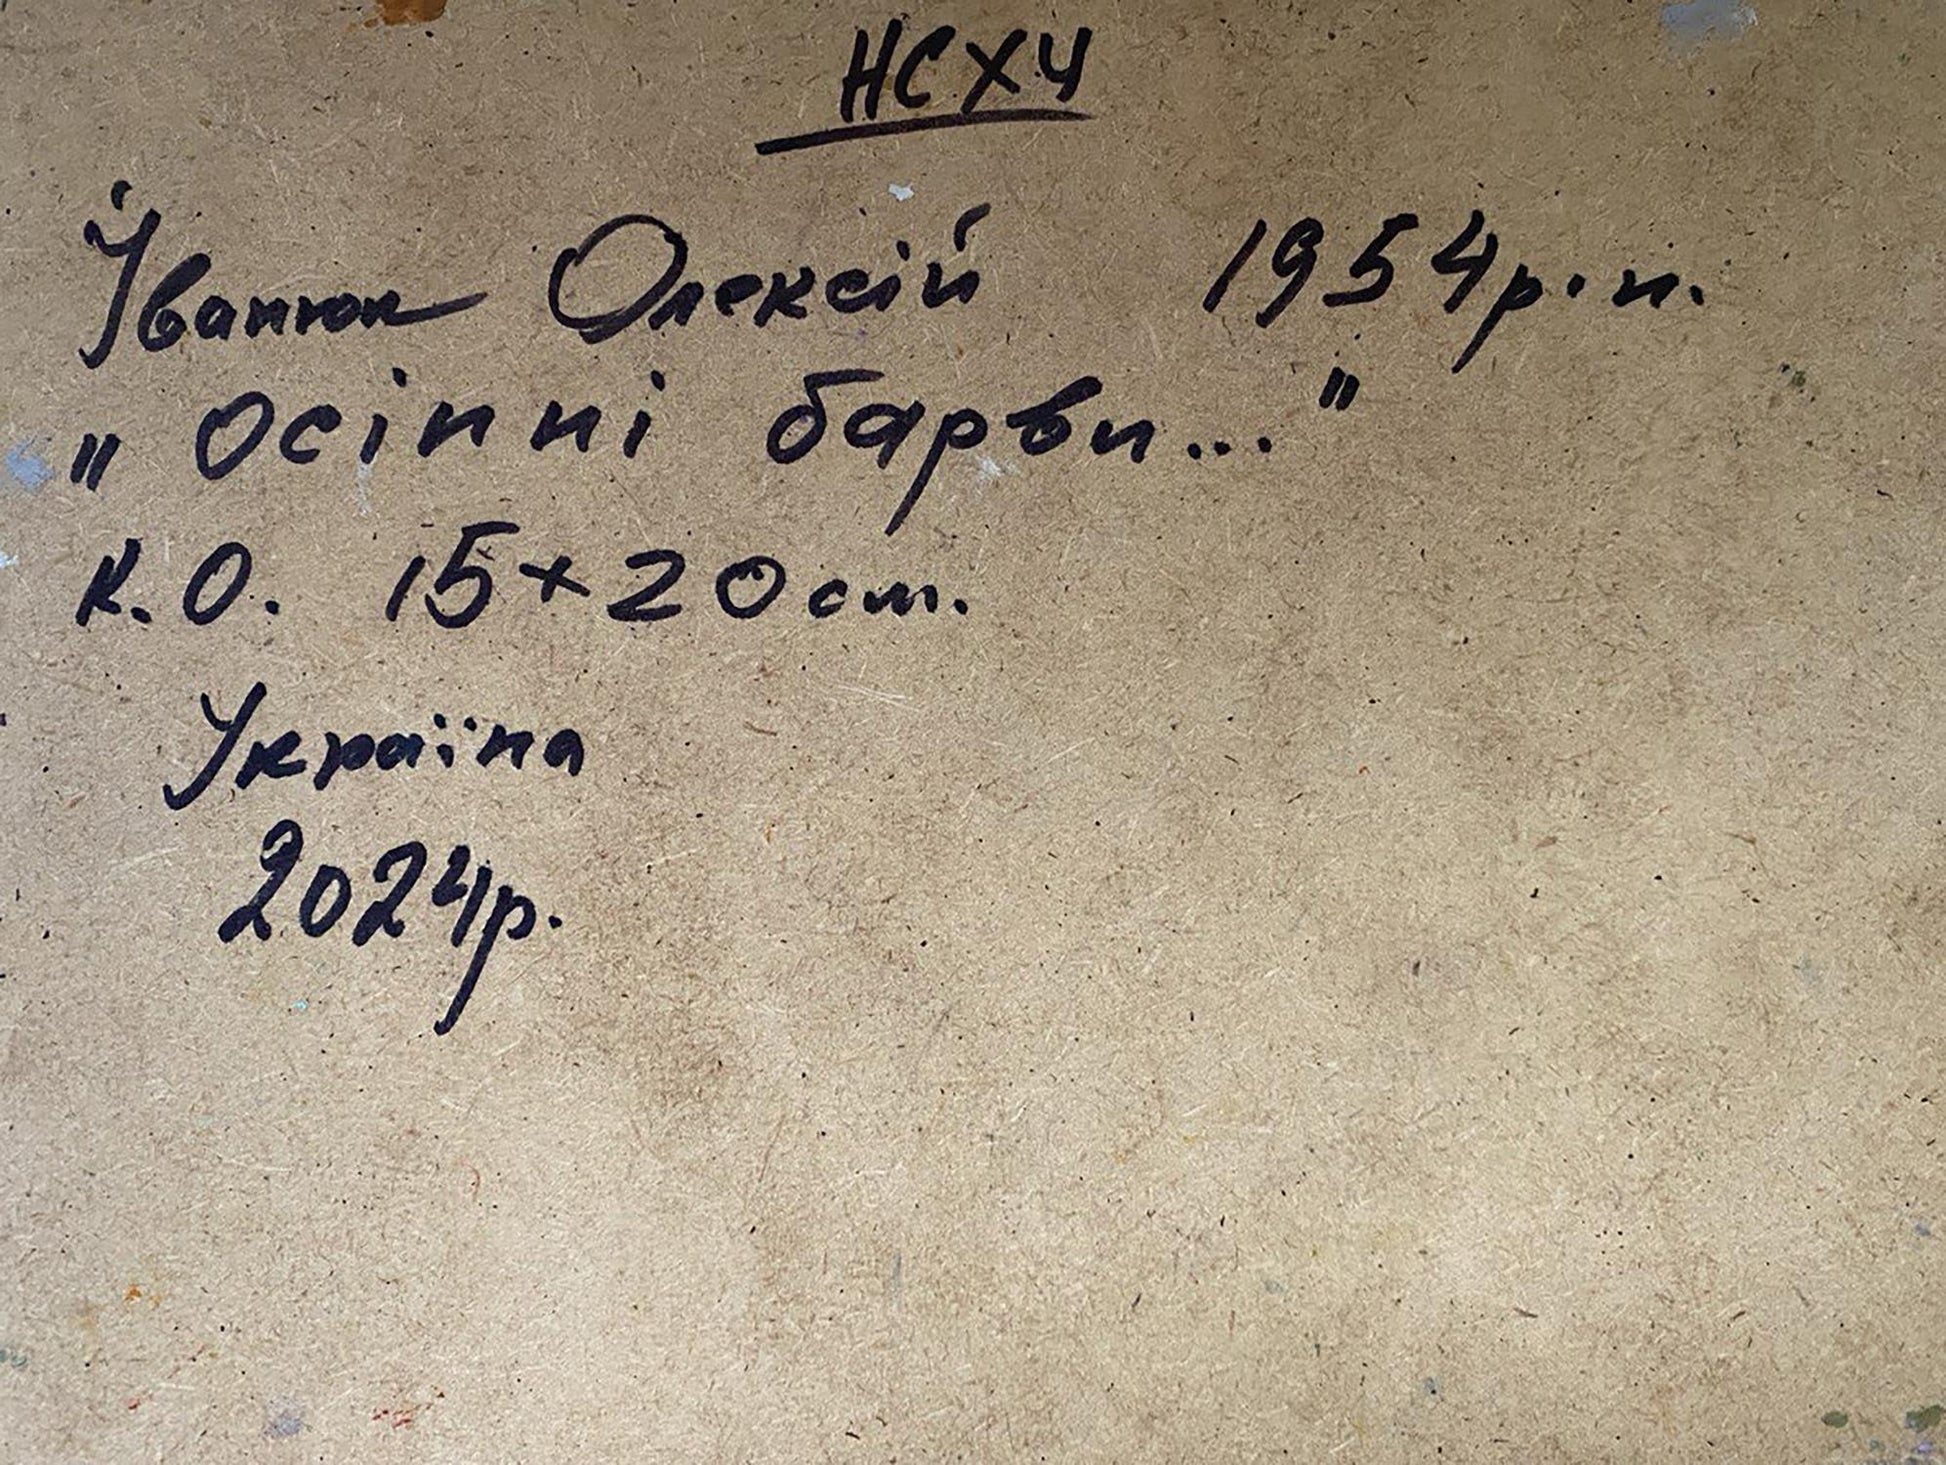 НСХУ
Іванюк Олексій 1954р.н.
"Осінні барви..."
к.о. 15×20см.
Україна
2024р.